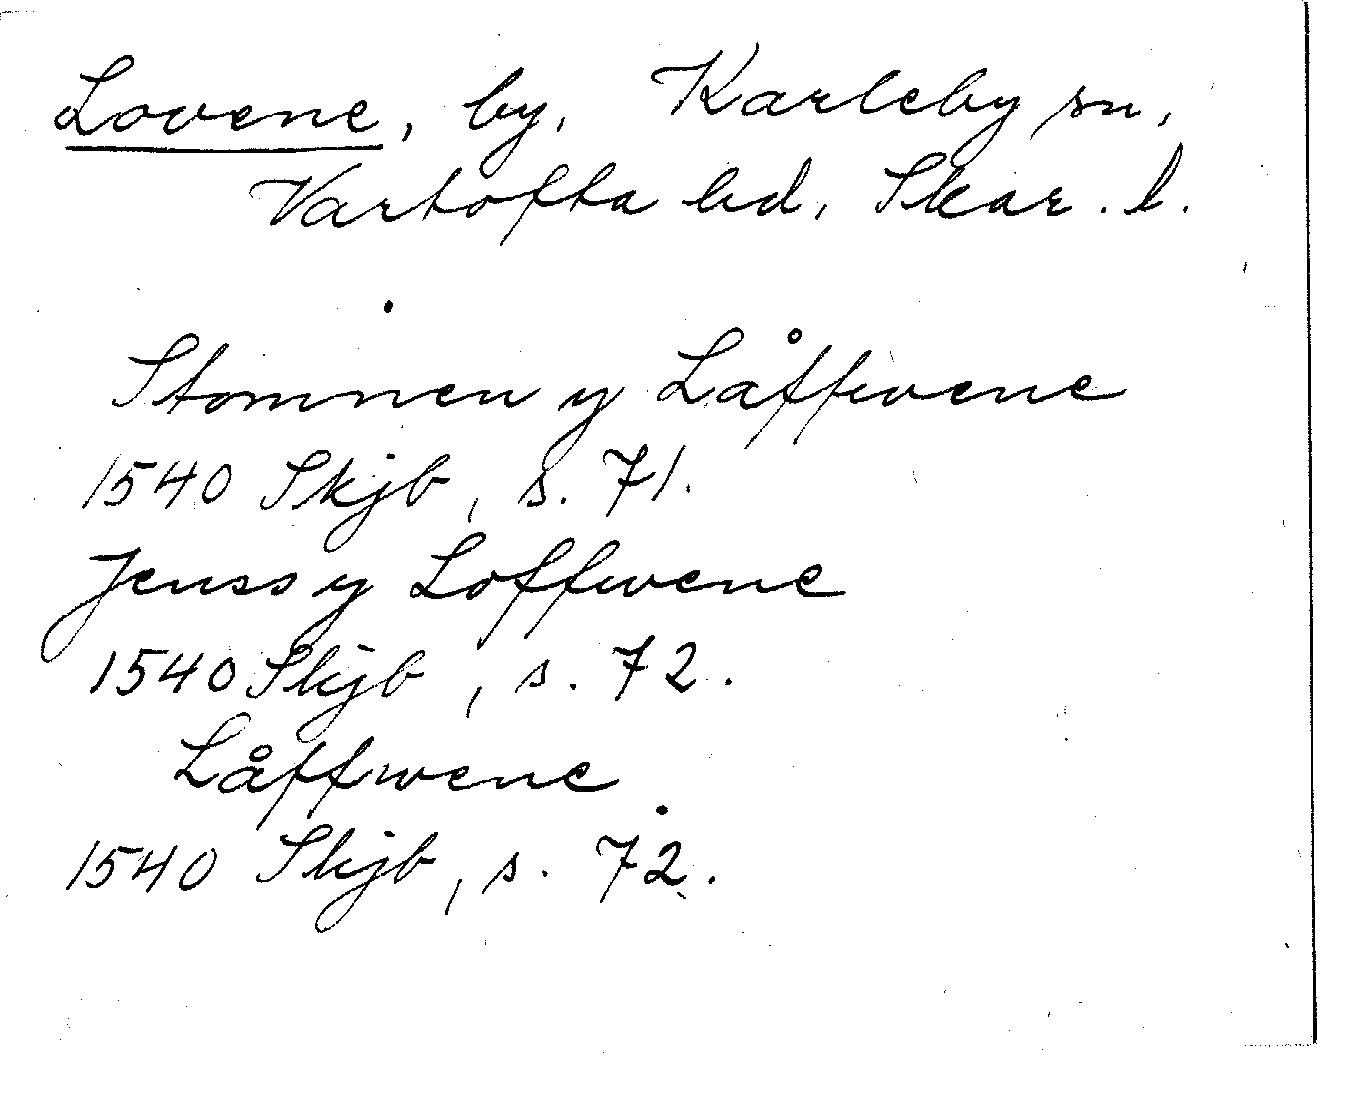 Lovene, by, Karleby sn,
Vartofta hd, Skar. l.
Stomnen y Låffwene
1540 Skjb, s. 71.
Jenss y Loffwene
1540 Skjb, s. 72.
Låffwene
1540 Skjb, s. 72.